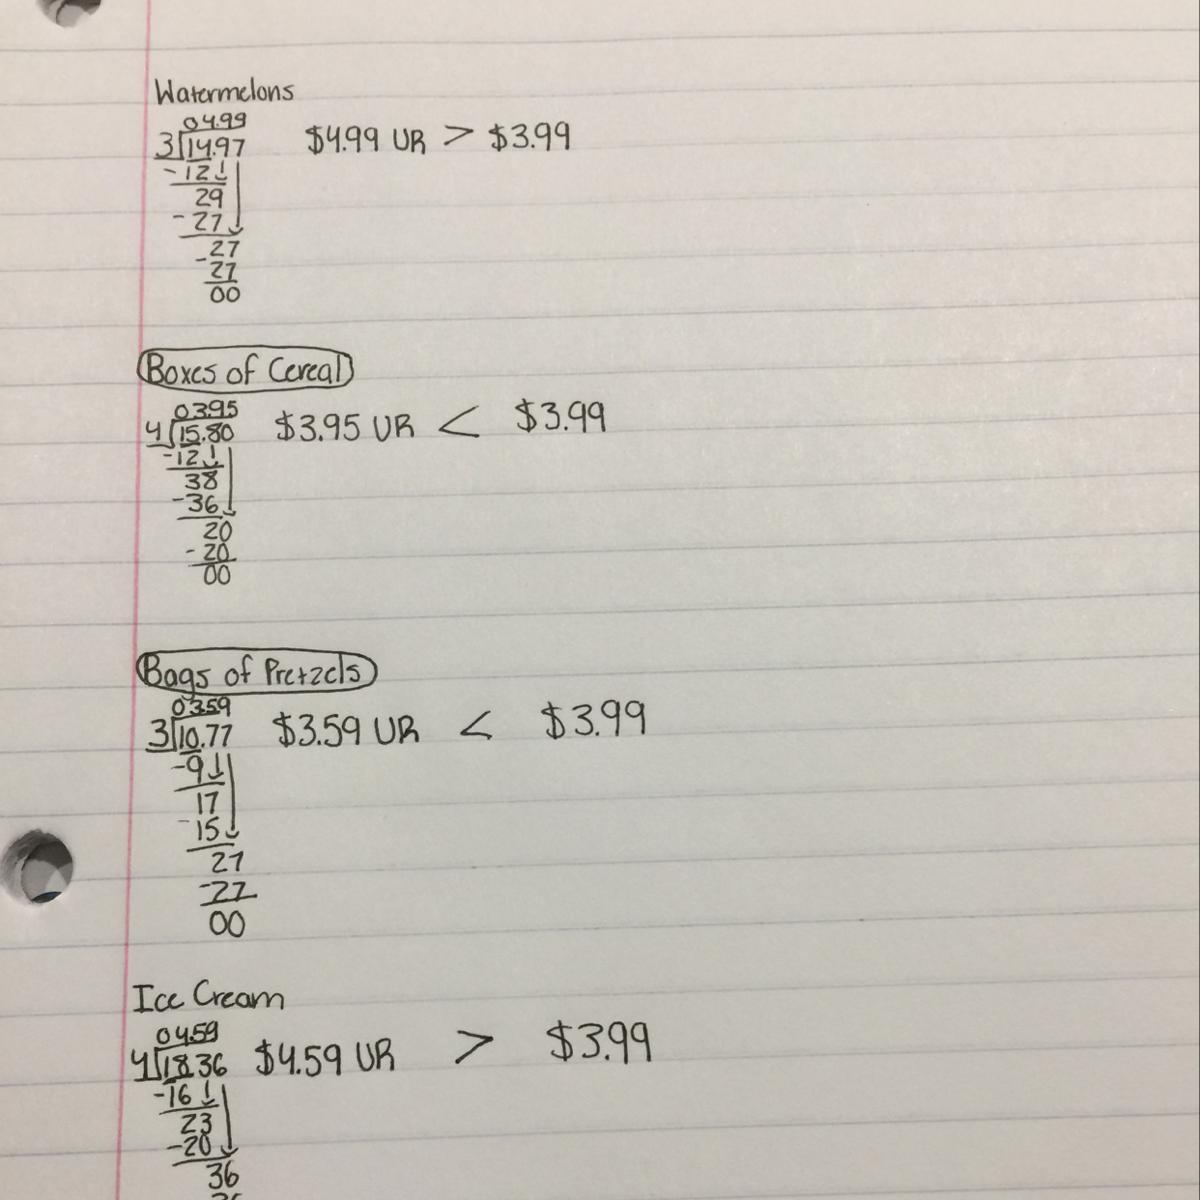 Watermelons
04.99
3 14.97 $4.99 UR > $3.99
-12
29
-27
-27
27
00
Boxes of Cereal
03.95
4 15.80 $3.95 UR < $3.99
-12
38
-36
20
-20
00
Bags of Pretzels
03.59
3 10.77 $3.59 UR < $3.99
-9
17
-15
27
-27
00
Ice Cream
04.59
4 18.36 $4.59 UR > $3.99
-16
23
-20
36